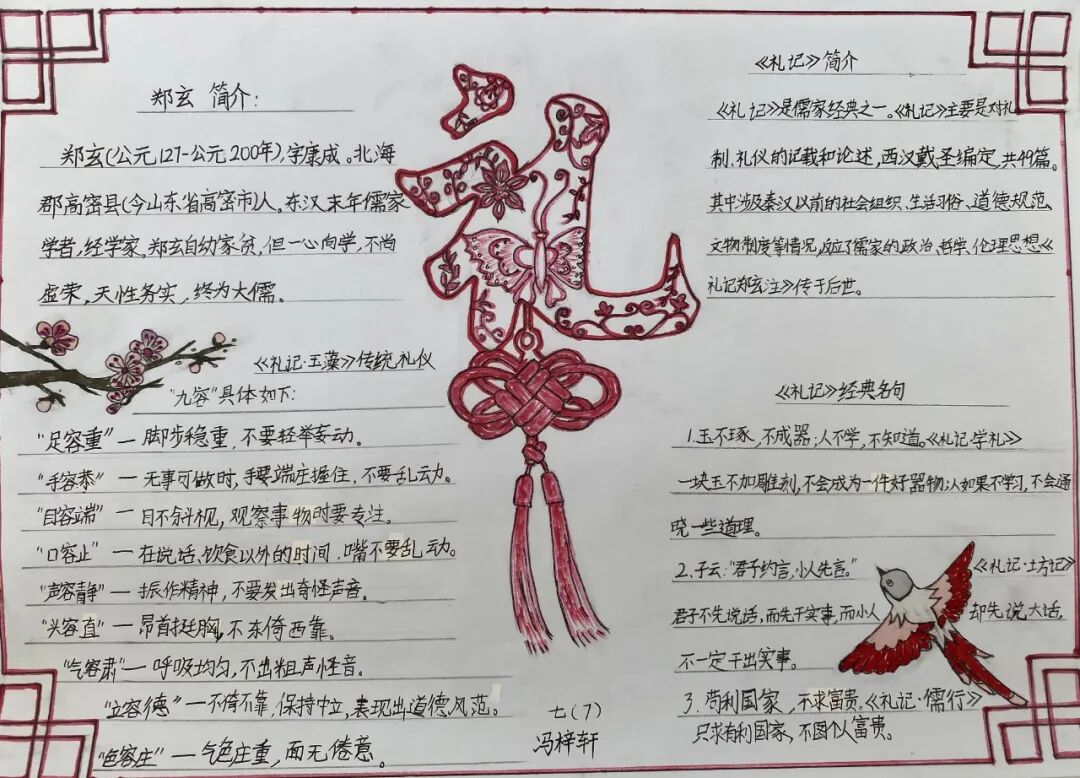 郑玄 简介:
郑玄(公元127-公元200年),字康成。北海
郡高密县(今山东省高密市)人。东汉末年儒家
学者,经学家。郑玄自幼家贫,但一心向学,不尚
虚荣,天性务实,终为大儒。
《礼记·玉藻》传统礼仪
"九容"具体如下:
"足容重"—脚步稳重,不要轻举妄动。
"手容恭"—无事可做时,手要端庄握住,不要乱动。
"目容端"—目不斜视,观察事物时要专注。
"口容止"—在说话、饮食以外的时间,嘴不要乱动。
"声容静"—振作精神,不要发出奇怪声音。
"头容直"—昂首挺胸,不东倚西靠。
"气容肃"—呼吸均匀,不出粗声怪音。
"立容德"—不倚不靠,保持中立,表现出道德风范。
"色容庄"—气色庄重,而无倦意。
礼
七(7)
冯梓轩
《礼记》简介
《礼记》是儒家经典之一。《礼记》主要是对礼
制、礼仪的记载和论述,西汉戴圣编定,共49篇。
其中涉及秦汉以前的社会组织、生活习俗、道德规范、
文物制度等情况,反应了儒家的政治、哲学、伦理思想《
礼记郑玄注》传于后世。
《礼记》经典名句
1.玉不琢,不成器;人不学,不知道。《礼记·学礼》
一块玉不加雕刻,不会成为一件好器物;人如果不学习,不会通
晓一些道理。
2.子云:"君子约言,小人先言。" 《礼记·坊记》
君子不先说话,而先干实事,而小人 却先说大话,
不一定干出实事。
3.苟利国家,不求富贵。《礼记·儒行》
只求有利国家,不图个人富贵。